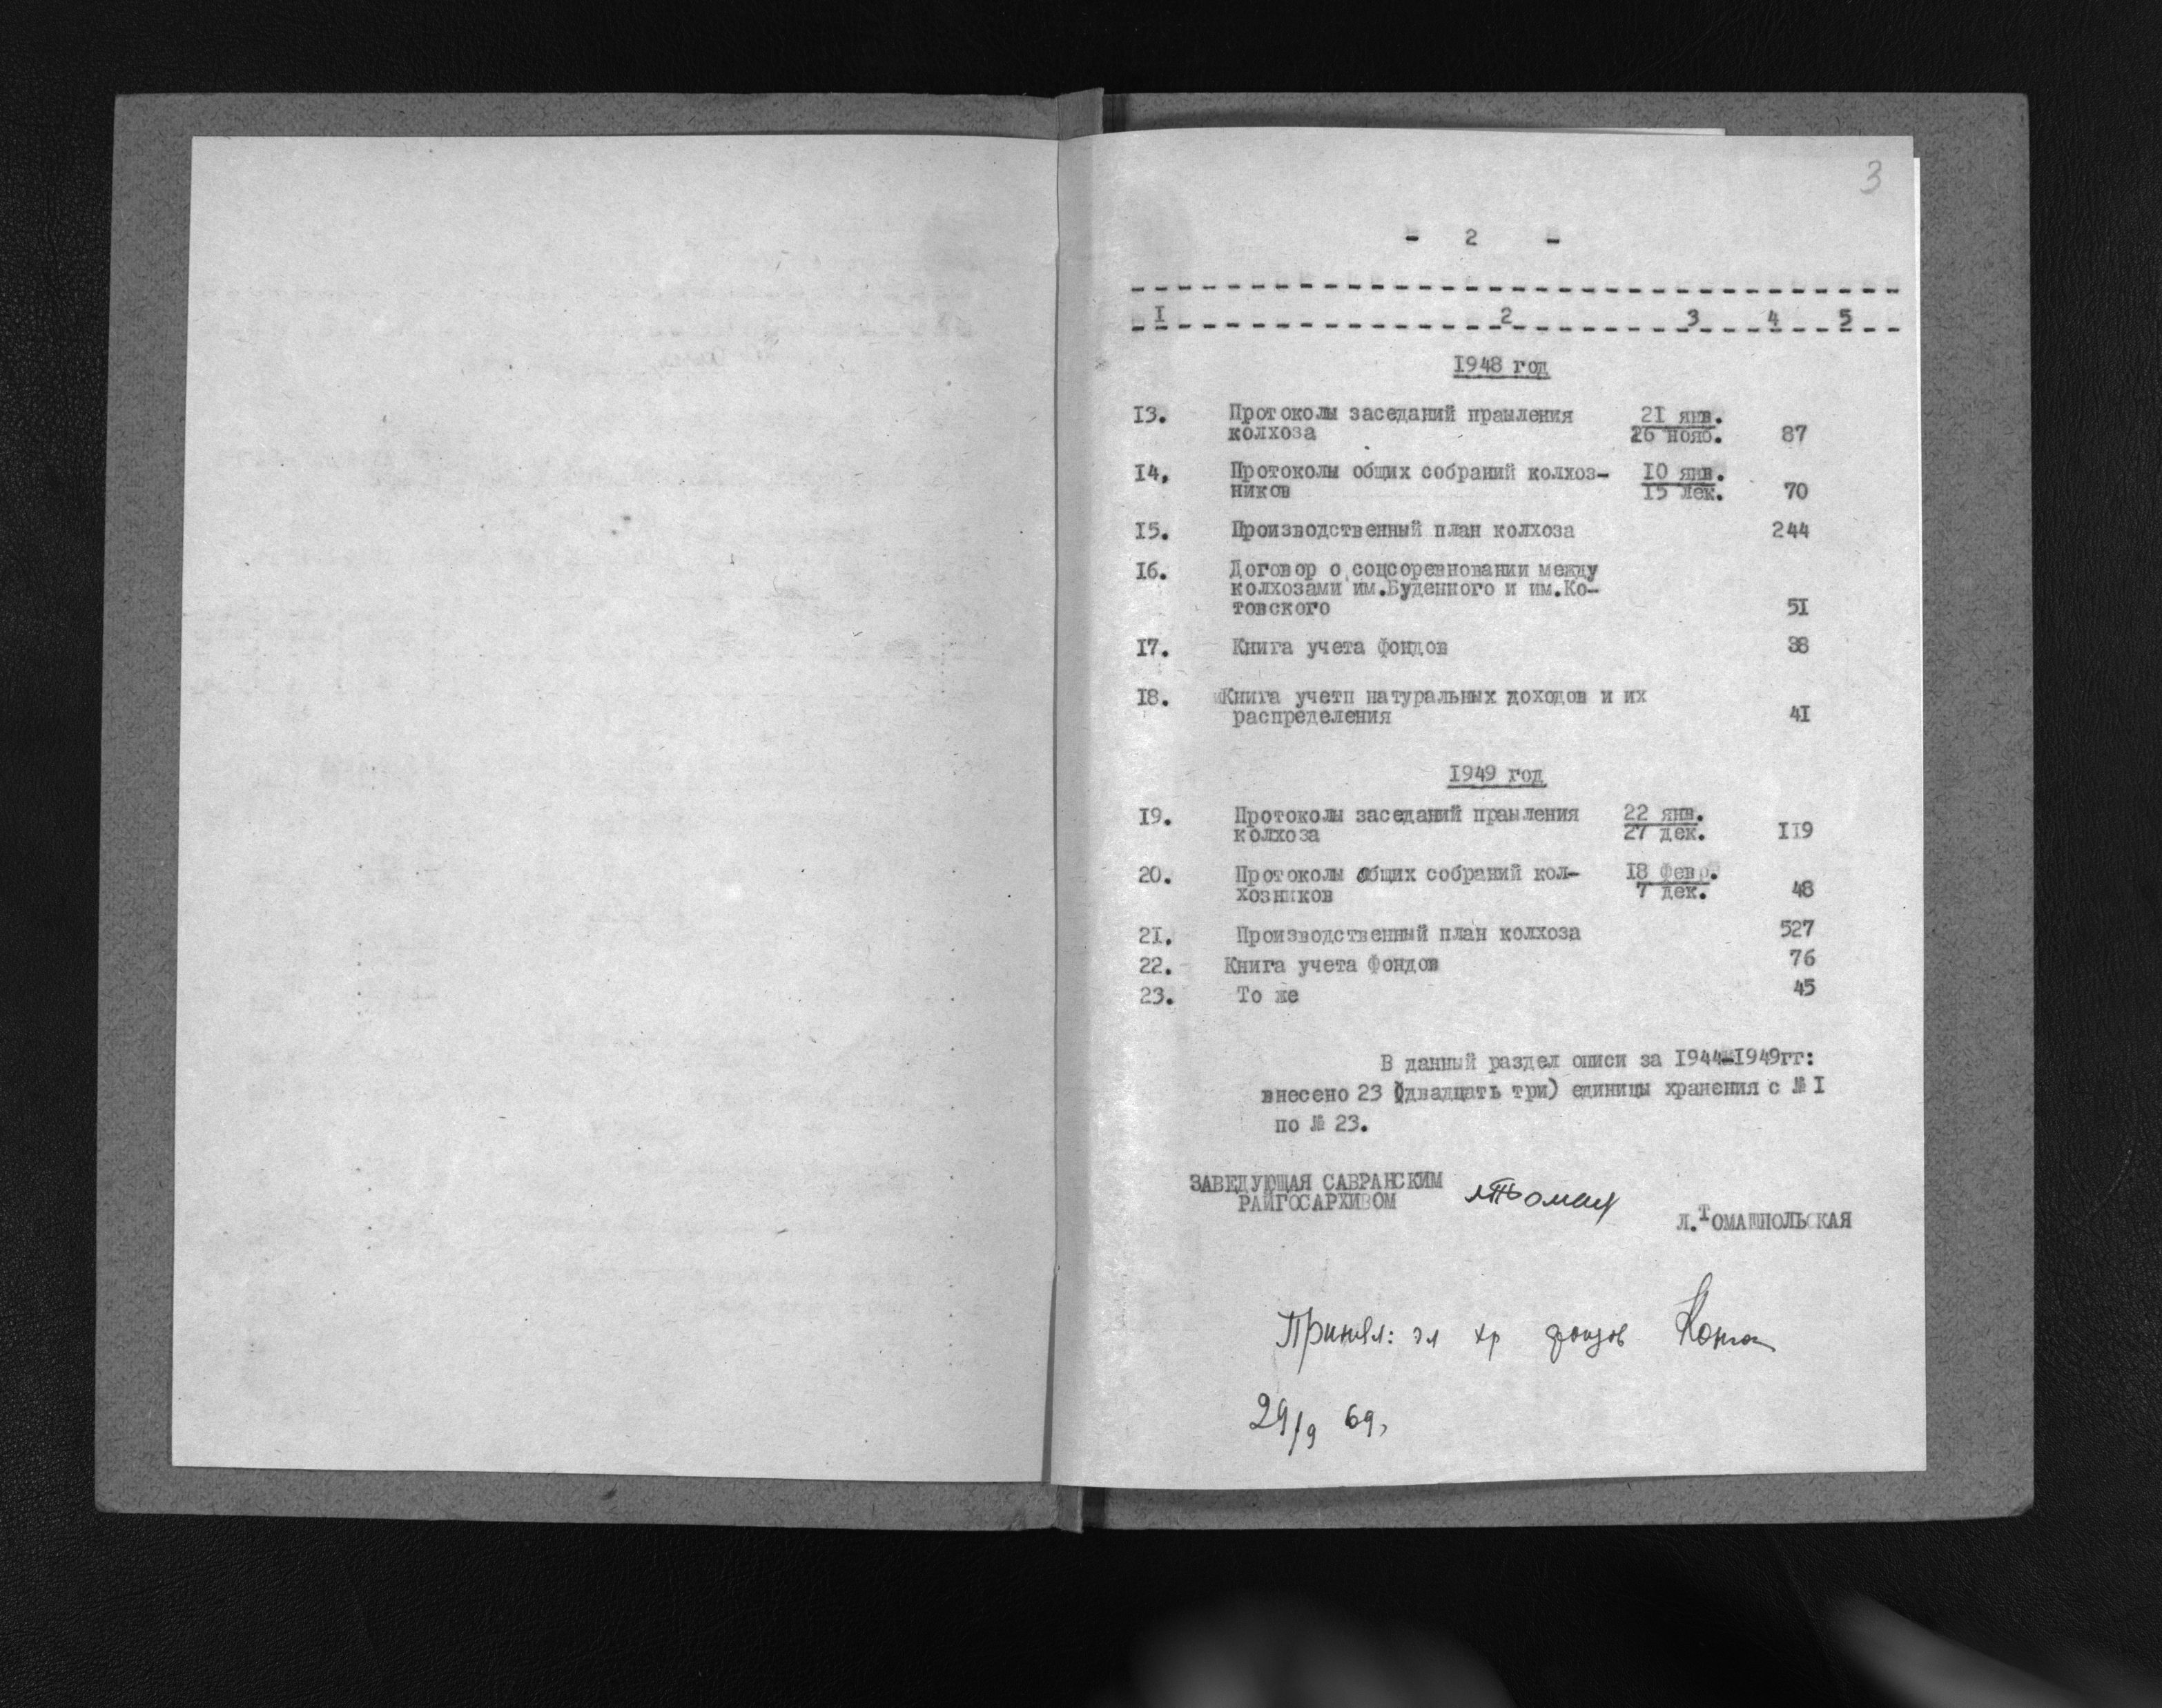 3
- 2 -
I 2 3 4 5
1948 год
I3. Протоколы заседаний праыления 2I янв.
колхоза 26 нояб. 87
I4. Протоколы общих собраний колхоз- IO янв.
ников I5 дек. 70
I5. Производственный план колхоза 244
I6. Договор о соцсоревновании между
колхозами им.Буденного и им.Ко-
товского 5I
I7. Книга учета фондов 38
I8. Книга учетп натуральных доходов и их
распределения 4I
I949 год
I9. Протоколы заседаний праыления 22 янв.
колхоза 27 дек. II9
20. Протоколы общих собраний кол- I8 февр.
хозников 7 дек. 48
2I. Производственный план колхоза 527
22. Книга учета фондов 76
23. То же 45
В данный раздел описи за I944-I949гг:
внесено 23 (двадцать три) единицы хранения с № I
по № 23.
ЗАВЕДУЮЩАЯ САВРАНСКИМ
РАЙГОСАРХИВОМ
Л.ТОМАШПОЛЬСКАЯ
Принял: хр фондов
29/9 69,